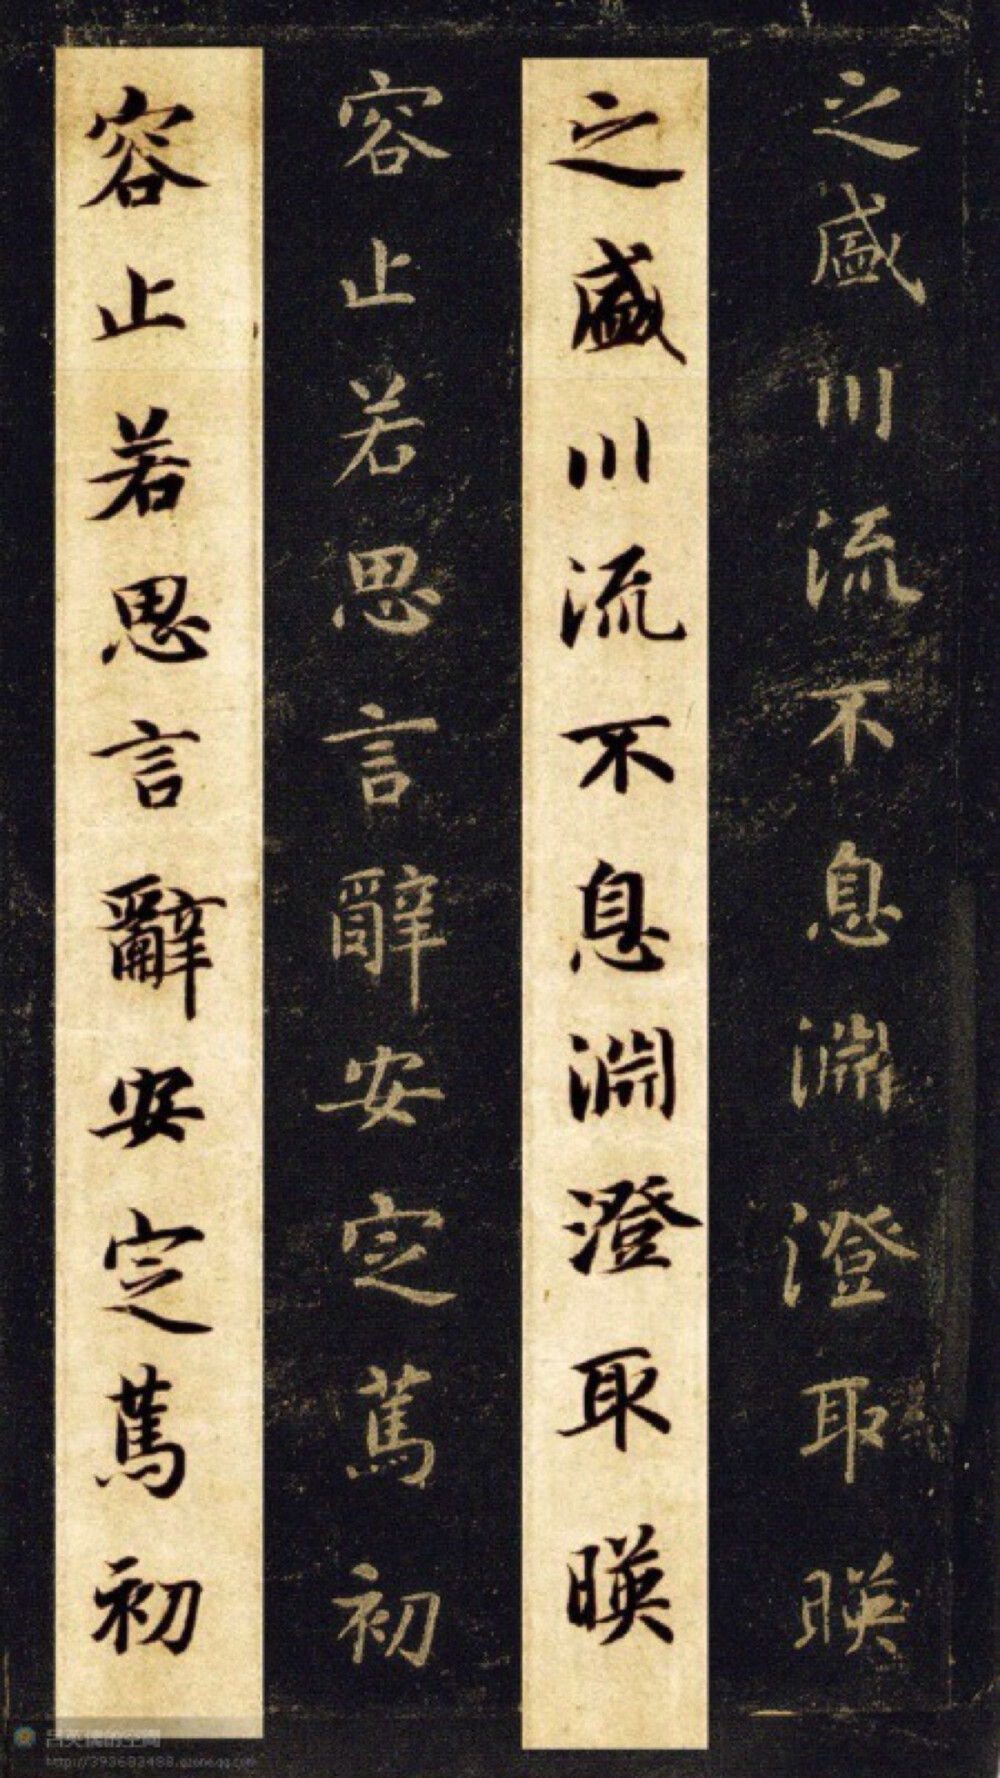 之盛川流不息淵澄取暎
之盛川流不息淵澄取暎
容止若思言辭安定篤初
容止若思言辭安定篤初
http://393683488.qzone.qq.com